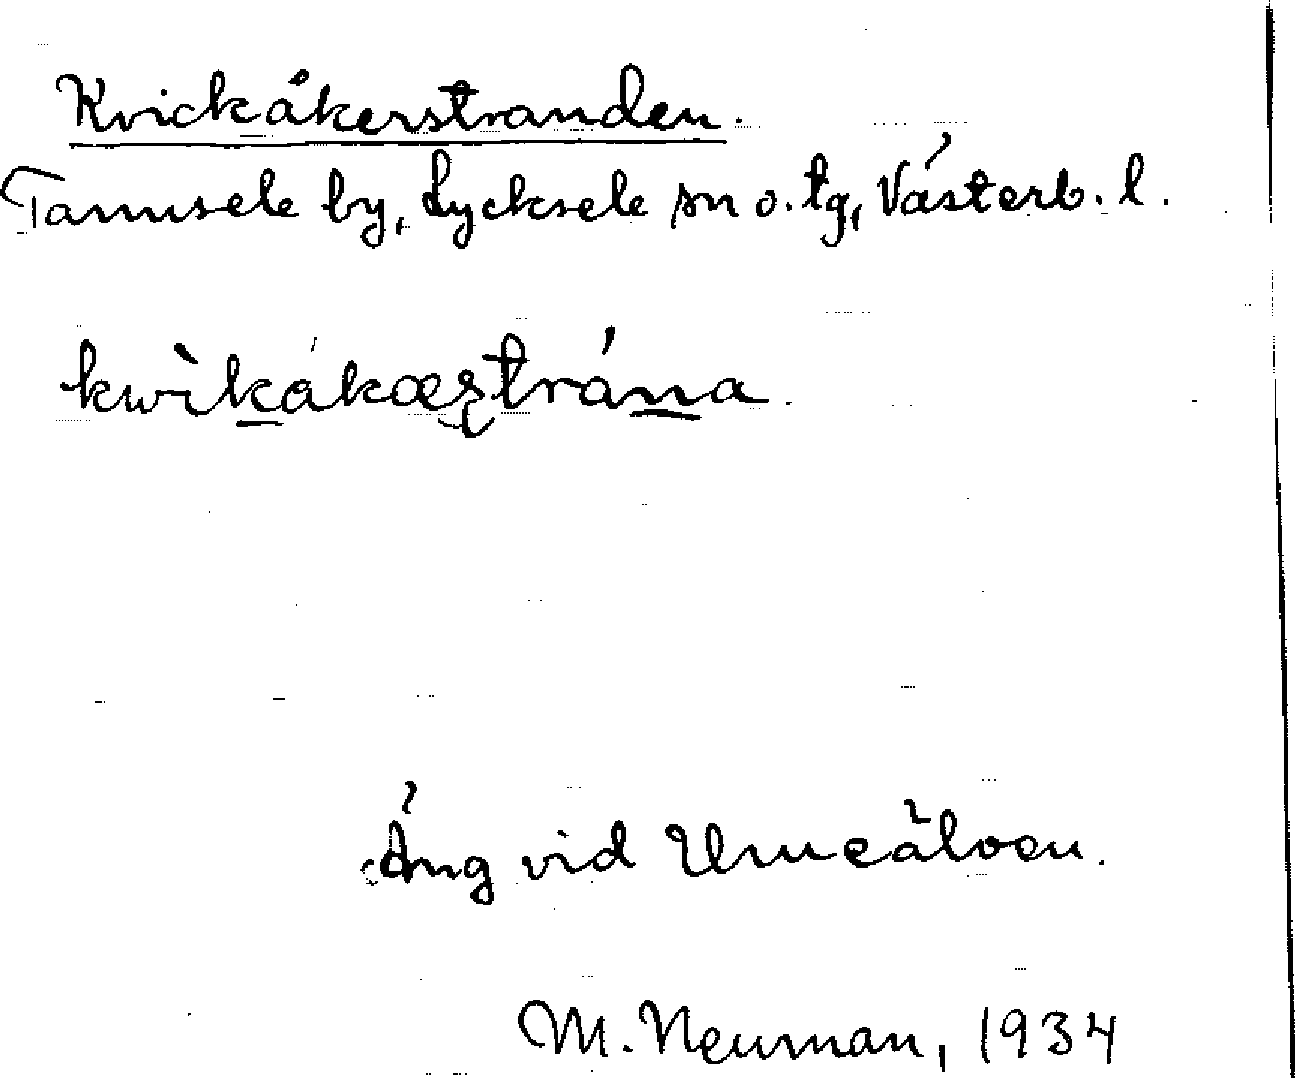 Kvickåkerstranden.
Tannsele by, Lycksele sn o. tg, Västerb. l.
kwìkákæʂtrána.
Äng vid Umeälven.
M. Neuman, 1934